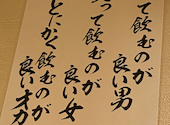 って飲むのが
良い男
って飲むのが
良い女
とにかく飲むのが
良いオカ